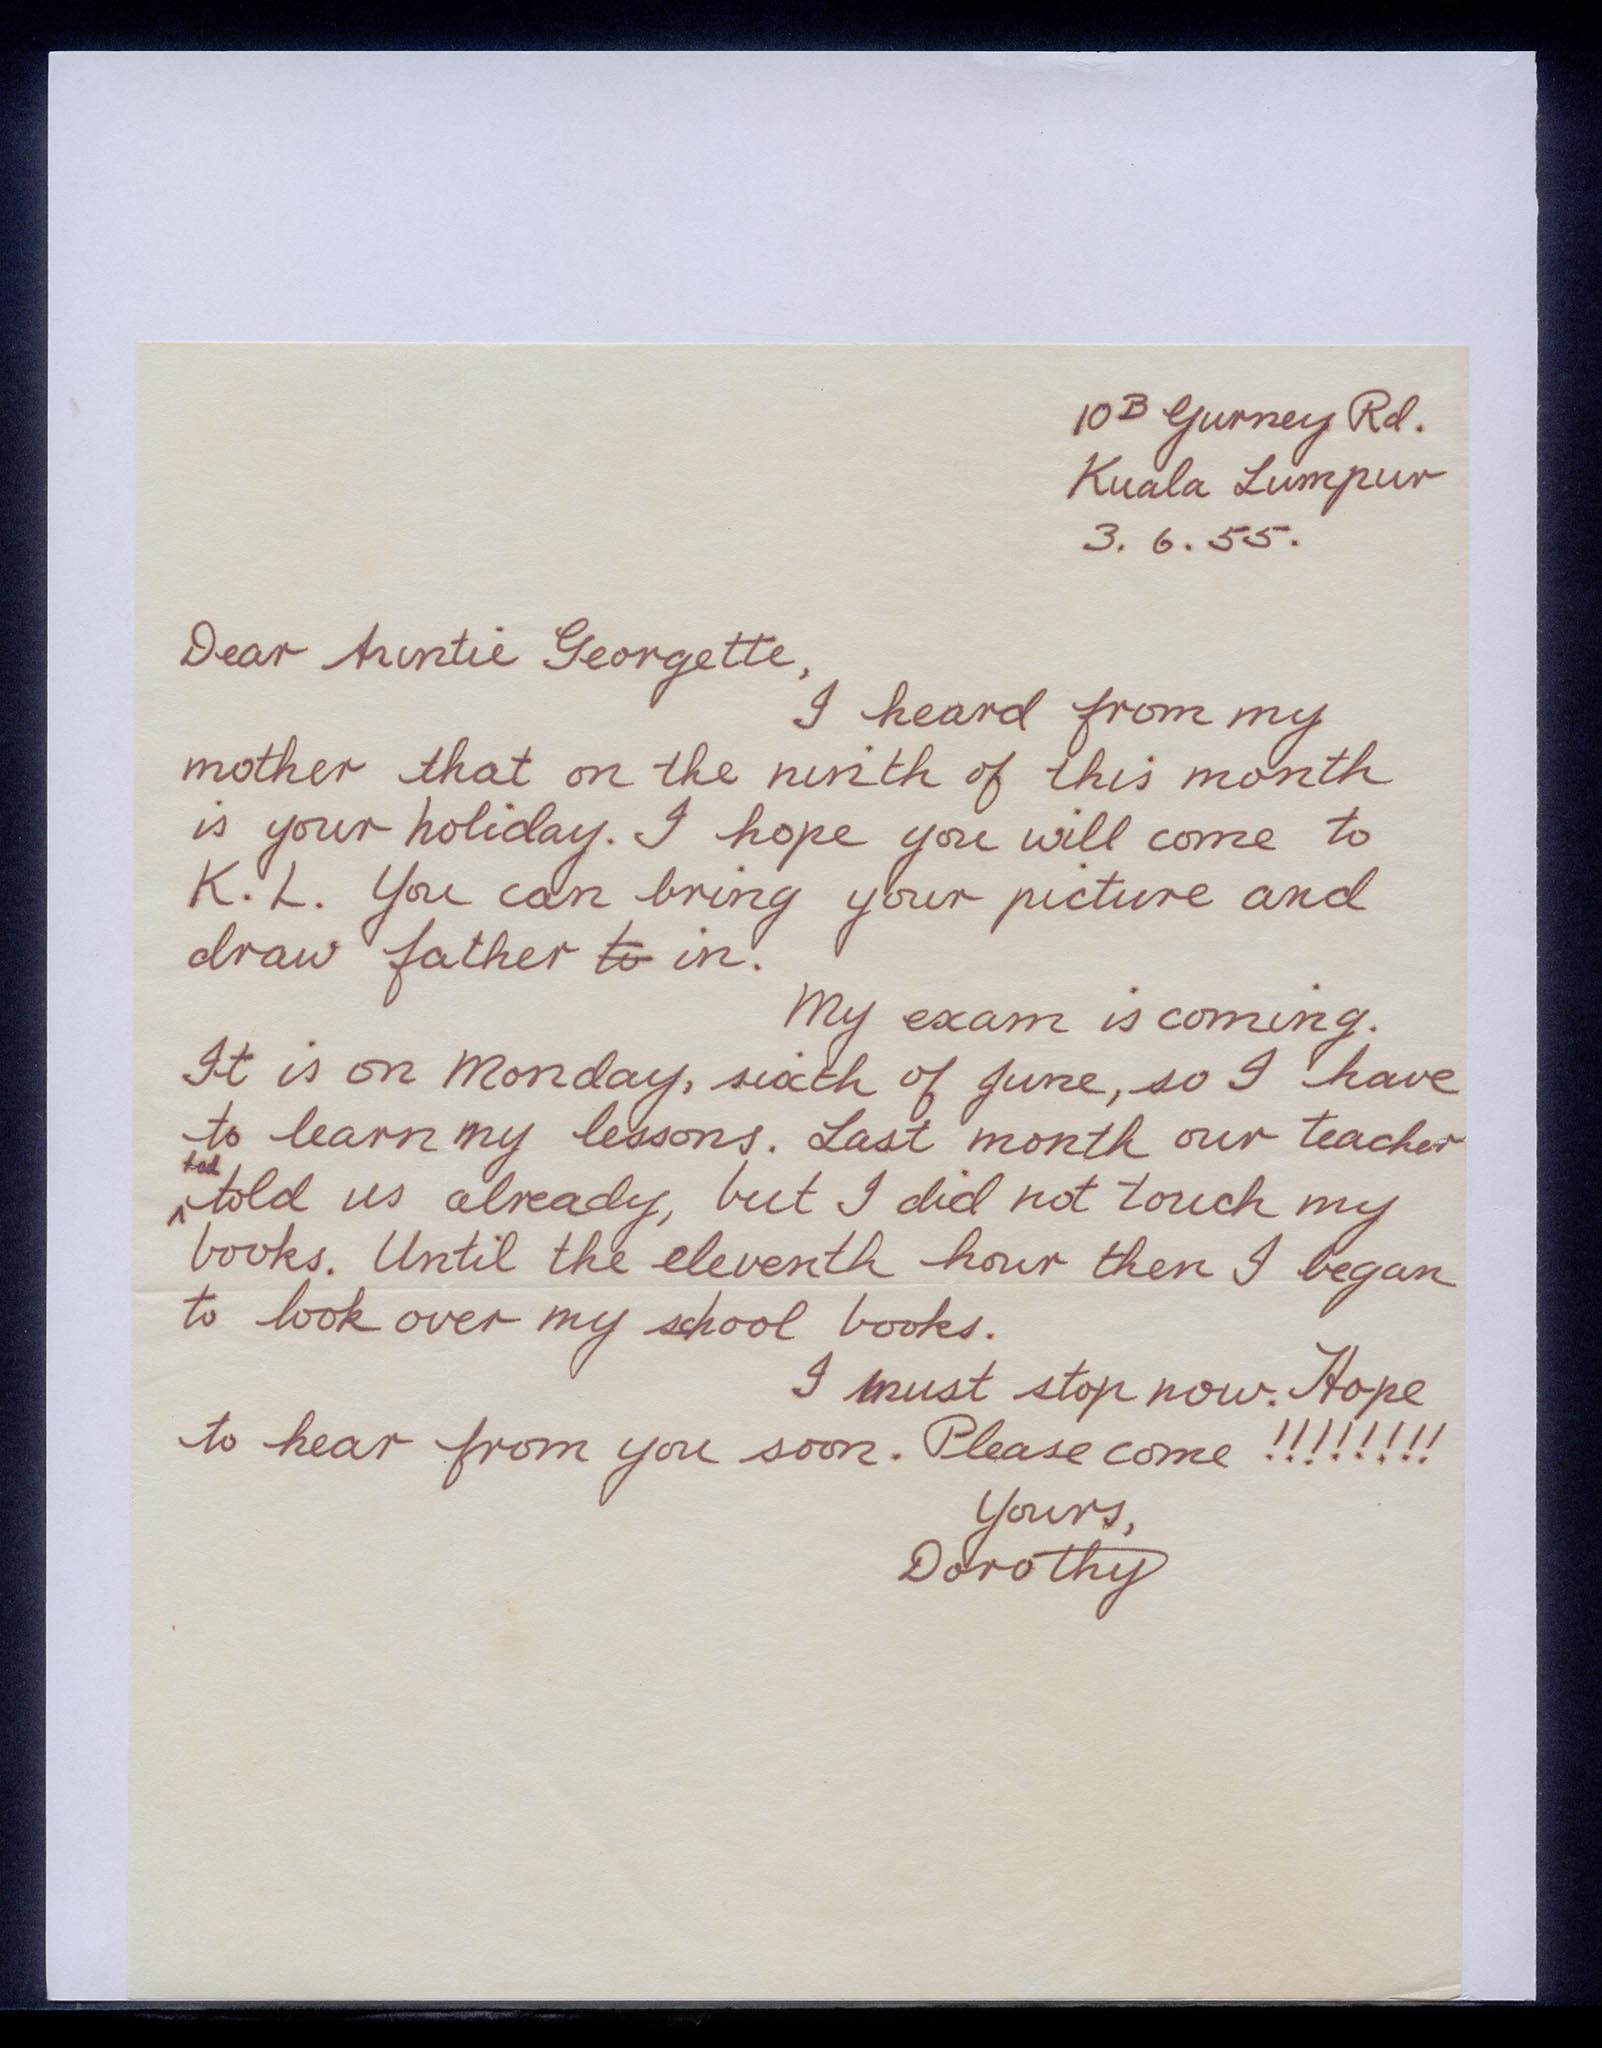 10B Gurney Rd.
Kuala Lumpur
3. 6. 55.
Dear Auntie Georgette,
I heard from my
mother that on the ninth of this month
is your holiday. I hope you will come to
K. L. You can bring your picture and
draw father to in.
My exam is coming.
It is on Monday, sixth of June, so I have
to learn my lessons. Last month our teacher
had
told us already, but I did not touch my
books. Until the eleventh hour then I began
to look over my school books.
I must stop now. Hope
to hear from you soon. Please come !!!!!!!!
Yours,
Dorothy